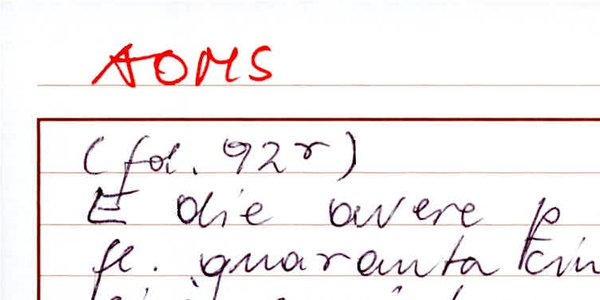 AOMS
(fol. 92r)
E die avere p
fl. quaranta cin